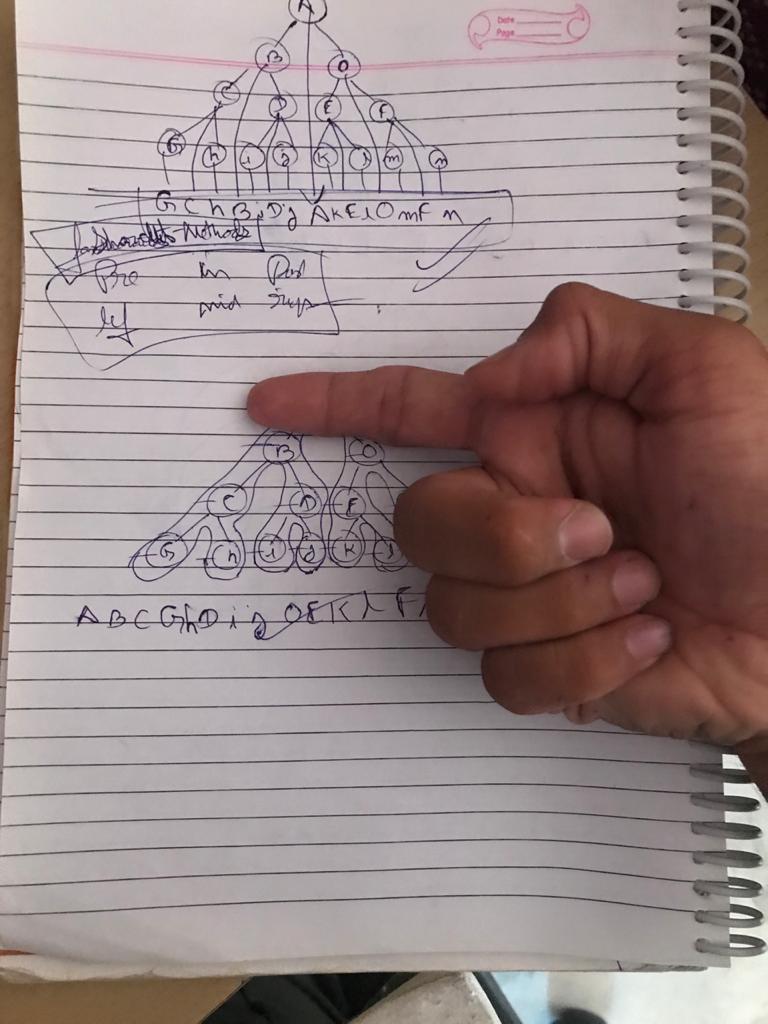 Date
Page
A
B O
C D E F
G h i j K l m n
G C h B i D j A K E l O m F n
Methods
Pre in Post
mid
B O
C D F
G h i j K l
A B C G h D i j O E K l F